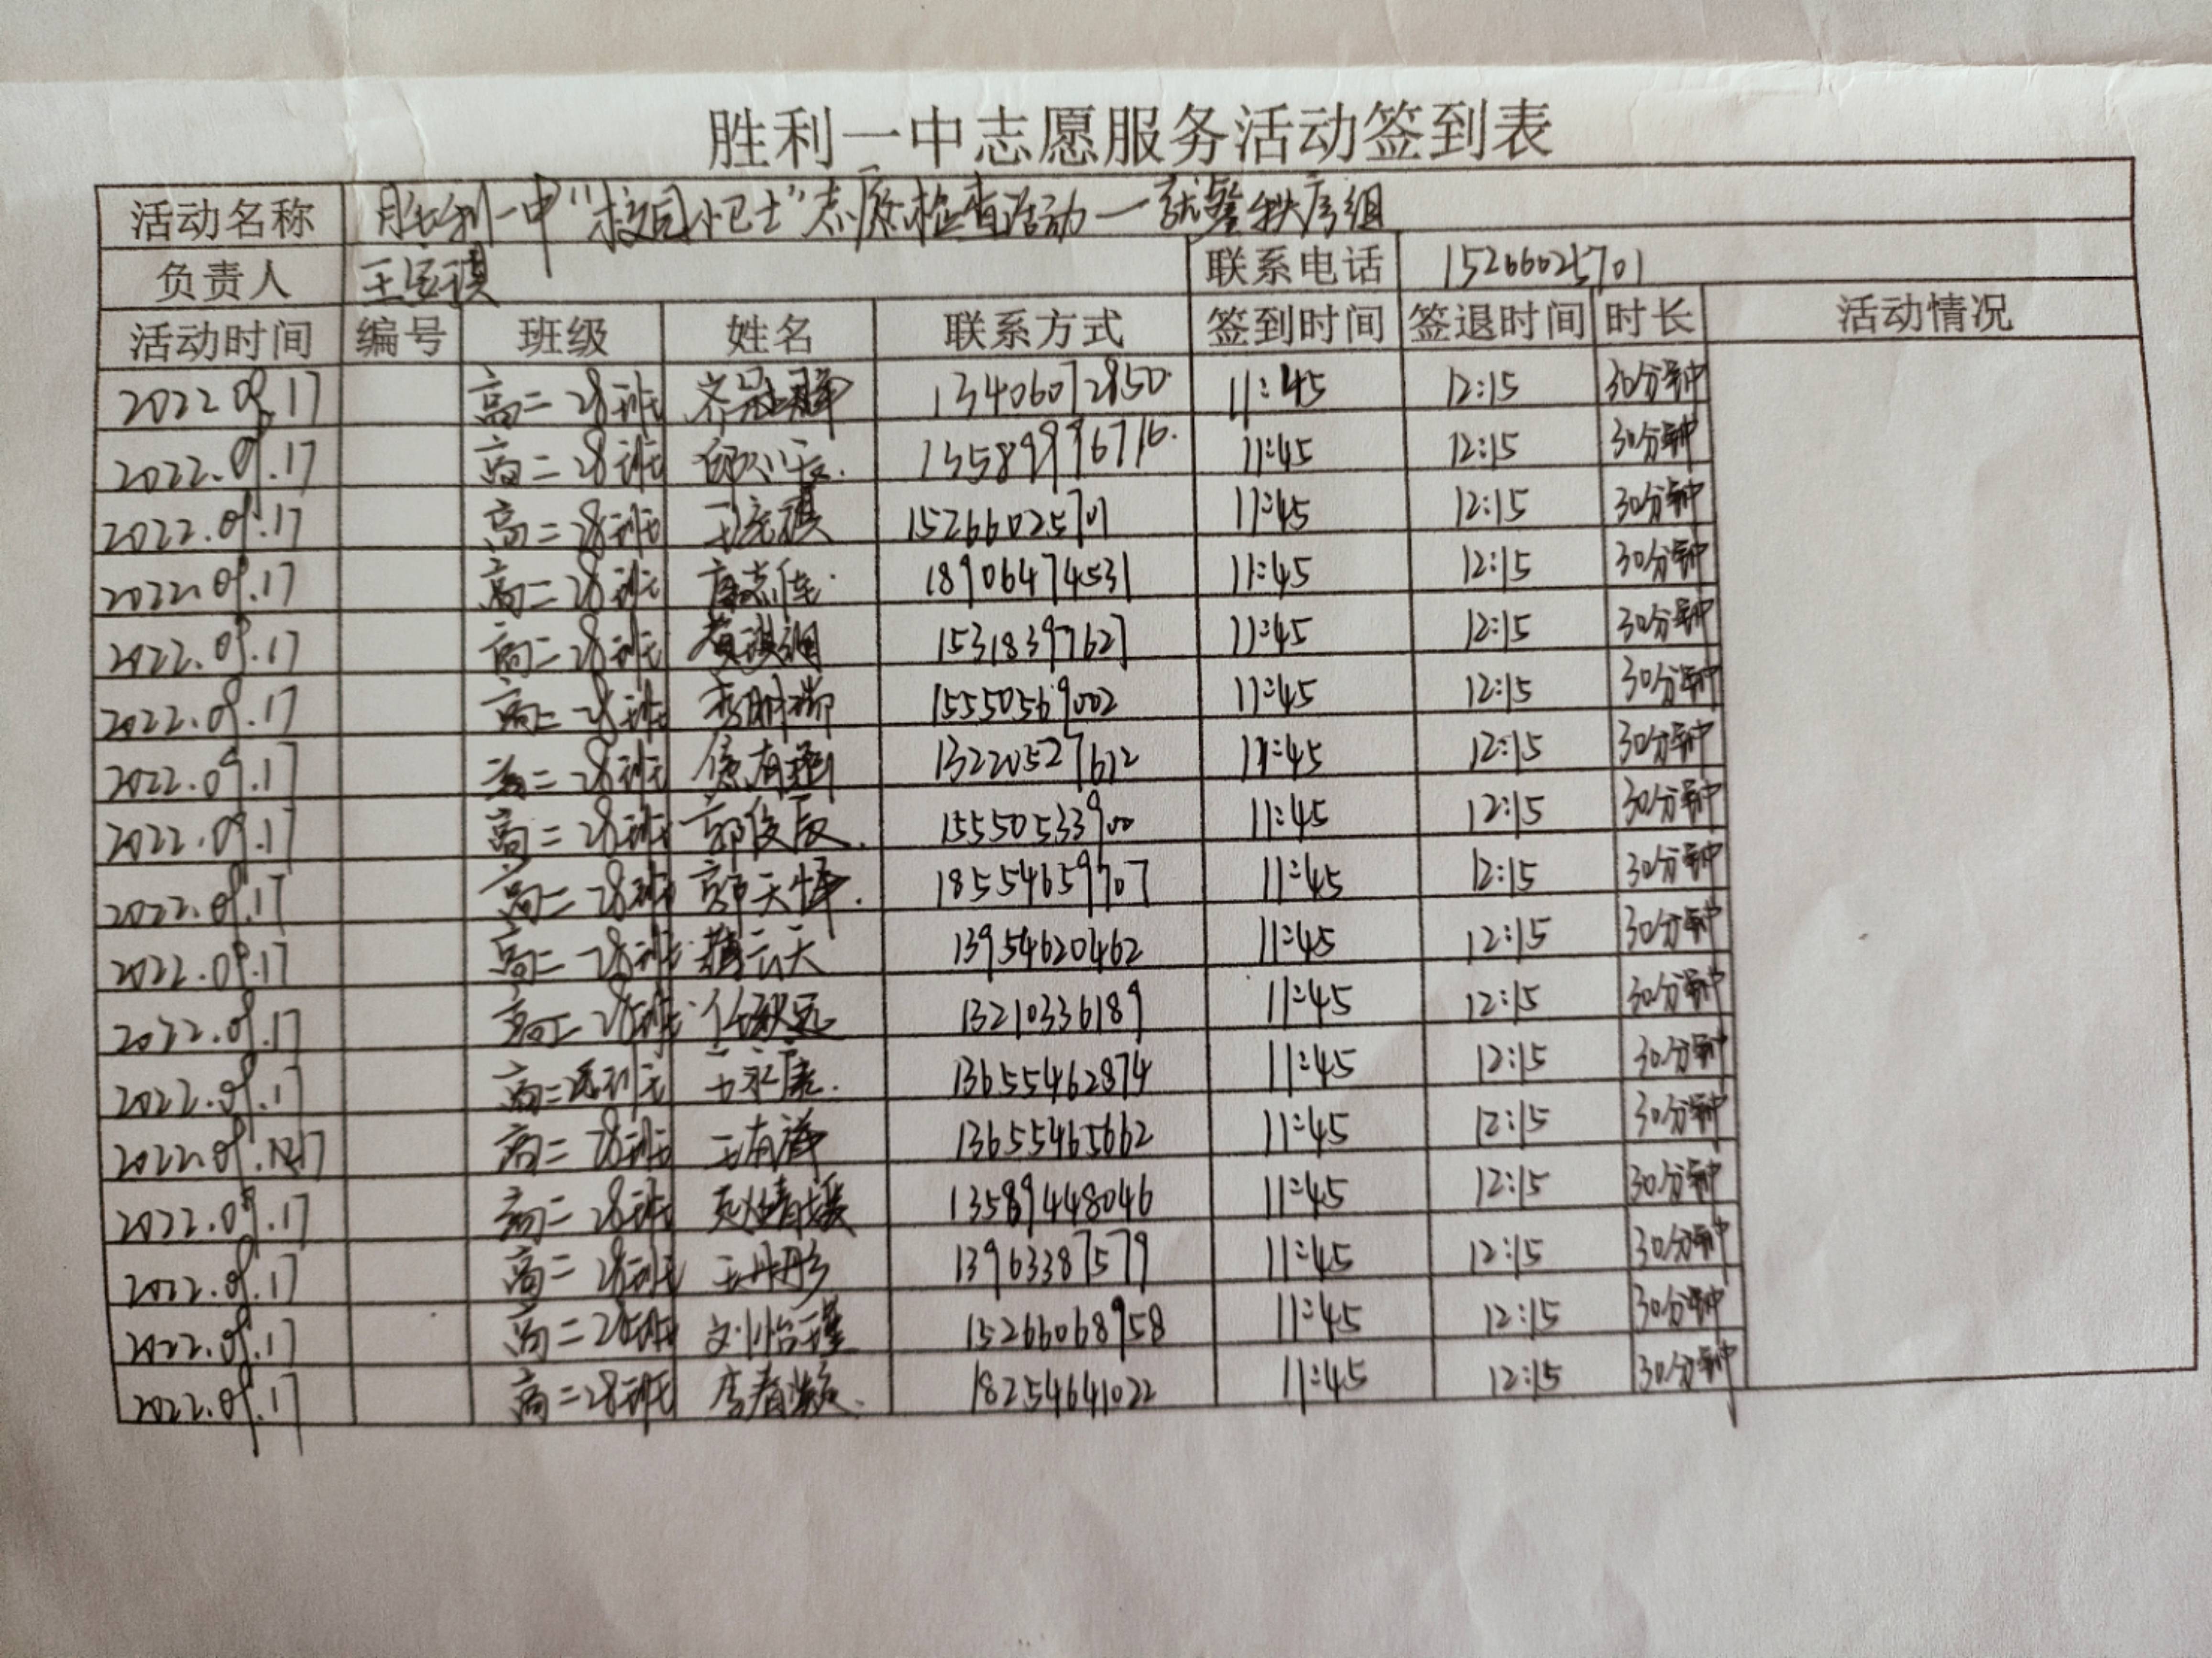 胜利一中志愿服务活动签到表
活动名称 胜利一中“校园小卫士”志愿检查活动—就餐秩序组
负责人 王宝琪 联系电话 15266025701
活动时间 编号 班级 姓名 联系方式 签到时间 签退时间 时长 活动情况
2022.09.17 高二28班 13406072850 11:45 12:15 30分钟
2022.09.17 高二28班 13589996716 11:45 12:15 30分钟
2022.09.17 高二28班 王宝琪 15266025701 11:45 12:15 30分钟
2022.09.17 高二28班 18906474531 11:45 12:15 30分钟
2022.09.17 高二28班 15318397627 11:45 12:15 30分钟
2022.09.17 高二28班 15550569002 11:45 12:15 30分钟
2022.09.17 高二28班 13220527612 11:45 12:15 30分钟
2022.09.17 高二28班 郭俊辰 15550533900 11:45 12:15 30分钟
2022.09.17 高二28班 18554659707 11:45 12:15 30分钟
2022.09.17 高二28班 薄云天 13954620462 11:45 12:15 30分钟
2022.09.17 高二28班 13210336189 11:45 12:15 30分钟
2022.09.17 高二28班 王永康 13655462874 11:45 12:15 30分钟
2022.09.17 高二28班 13655465662 11:45 12:15 30分钟
2022.09.17 高二28班 13589448046 11:45 12:15 30分钟
2022.09.17 高二28班 王丹彤 13963387579 11:45 12:15 30分钟
2022.09.17 高二28班 刘怡瑾 15266068958 11:45 12:15 30分钟
2022.09.17 高二28班 18254641022 11:45 12:15 30分钟